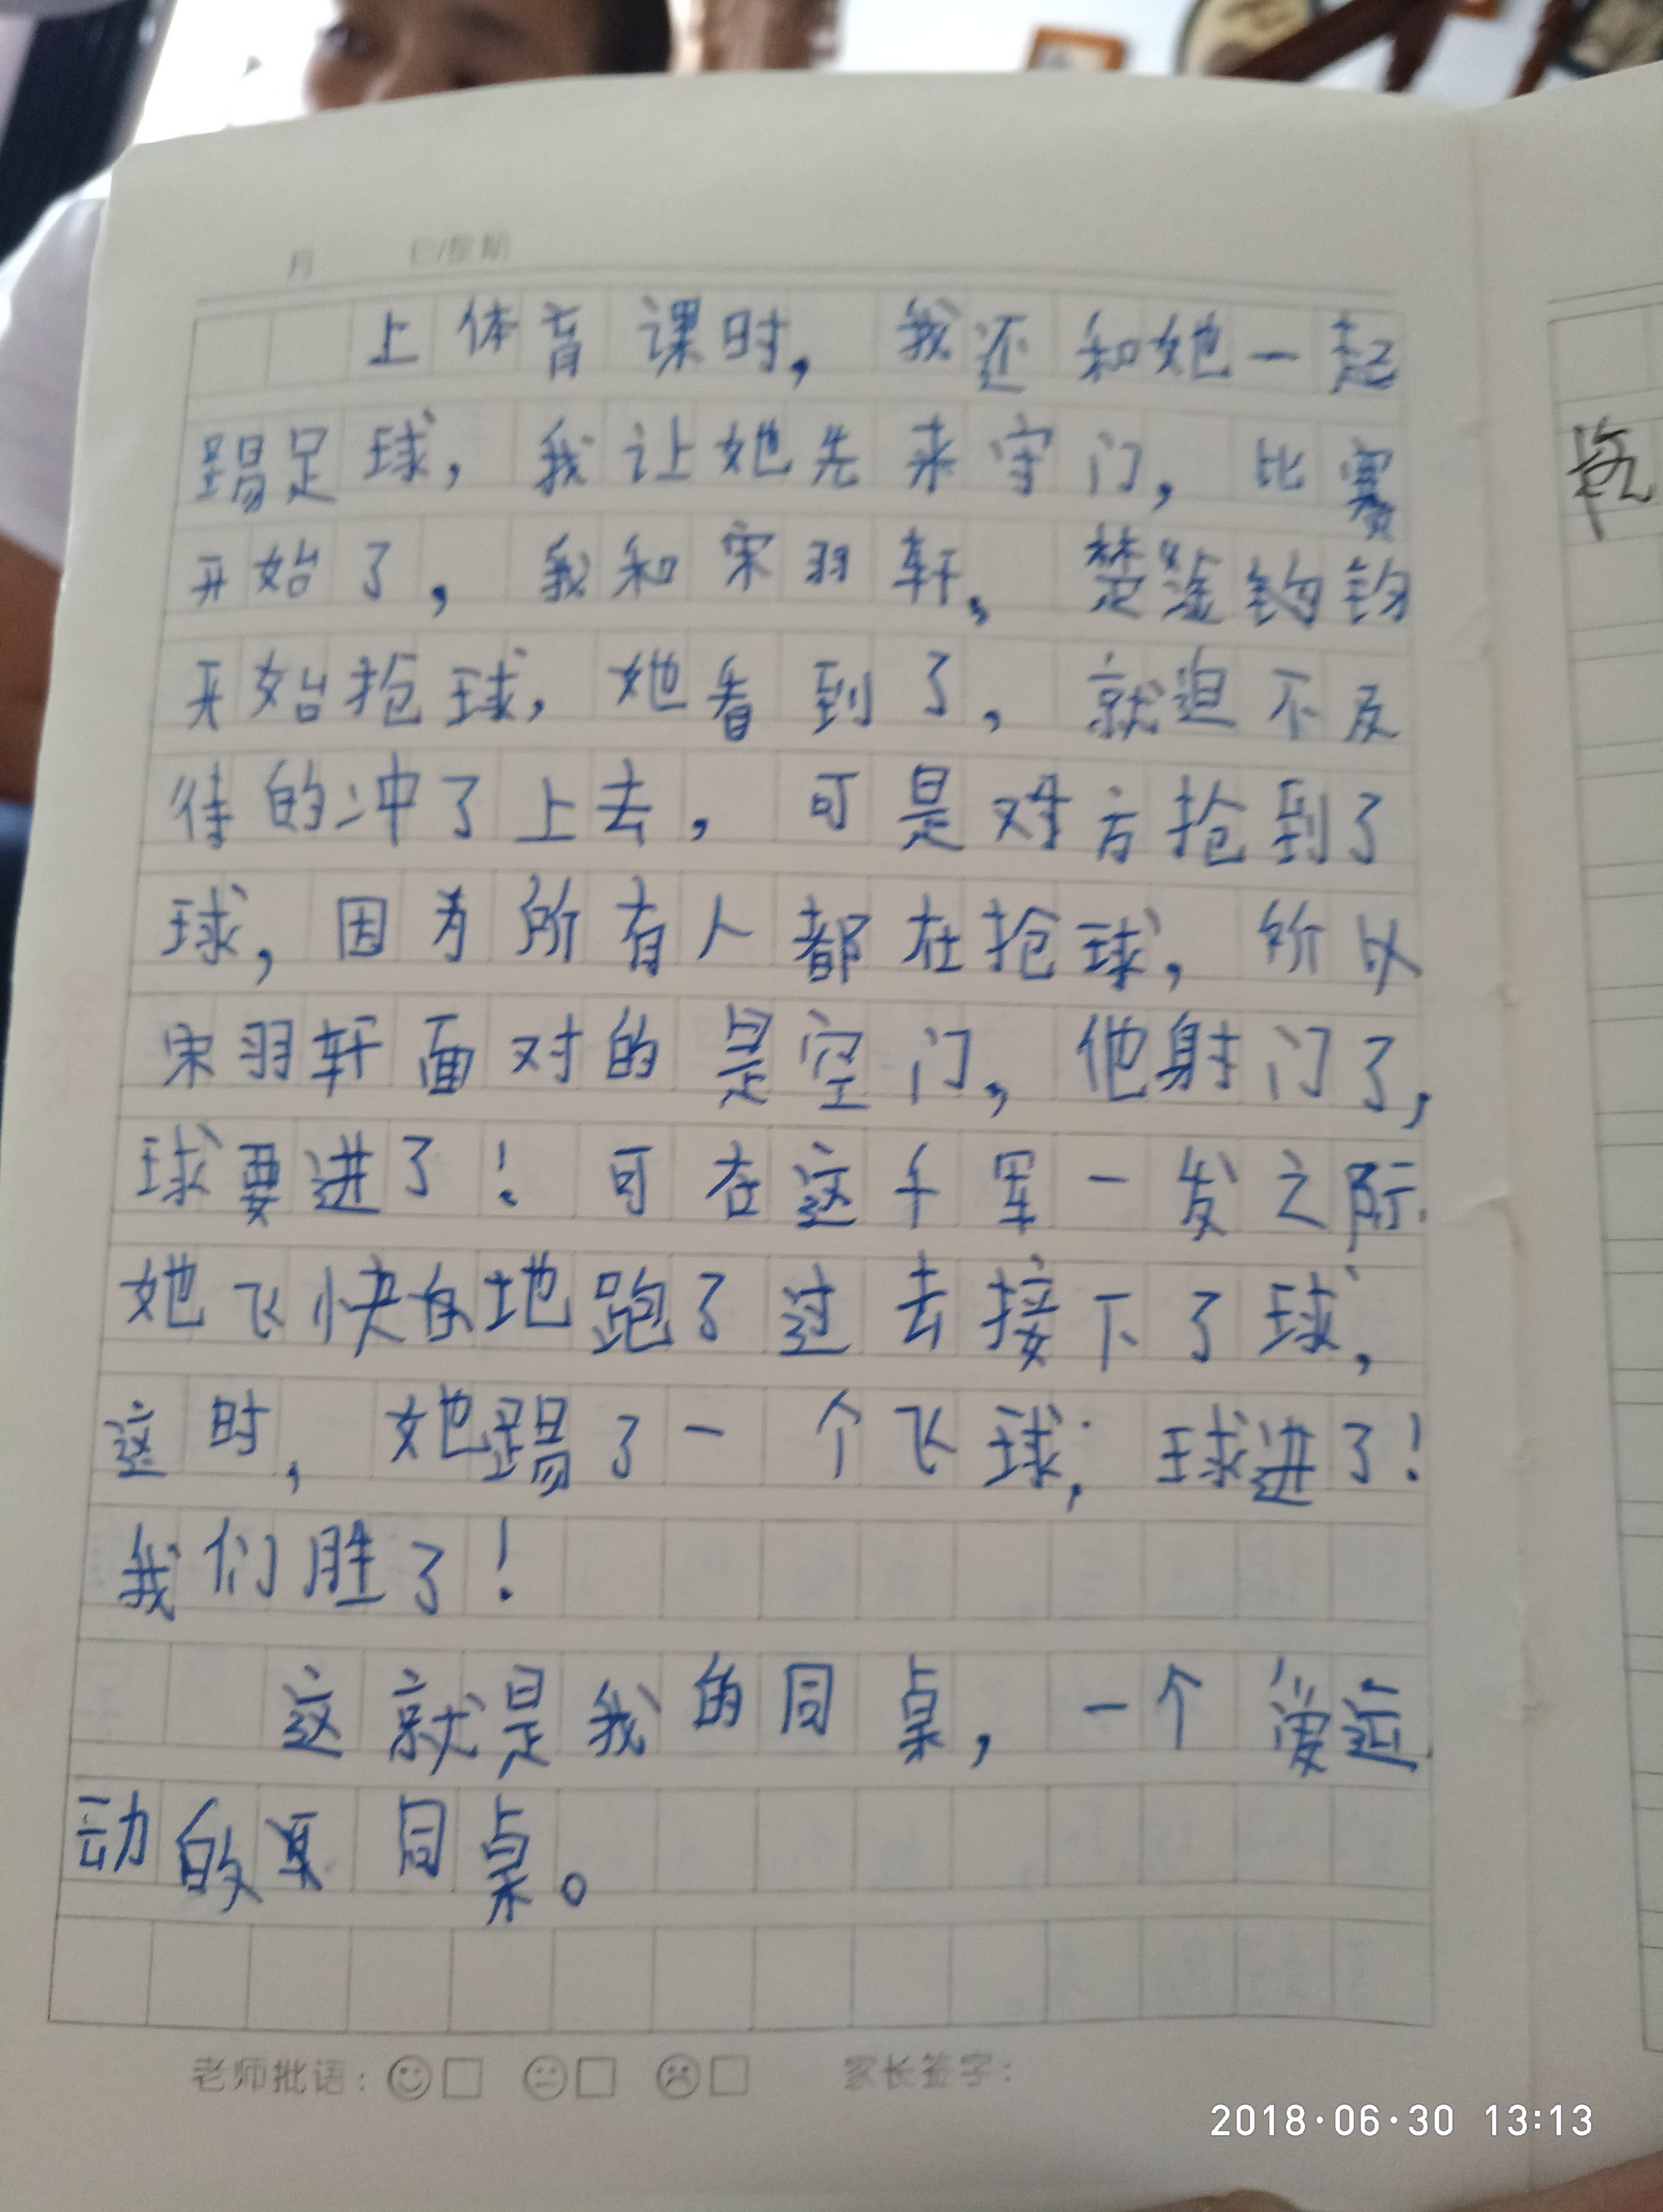 月 日/星期
上体育课时，我还和她一起
踢足球，我让她先来守门，比赛
开始了，我和宋羽轩、楚
开始抢球，她看到了，就迫不及
待的冲了上去，可是对方抢到了
球，因为所有人都在抢球，所以
宋羽轩面对的是空门，他射门了，
球要进了！可在这千军一发之际
她飞快地跑了过去接下了球，
这时，她踢了一个飞球，球进了！
我们胜了！
这就是我的同桌，一个爱运
动的同桌。
老师批语： 家长签字：
2018·06·30 13:13